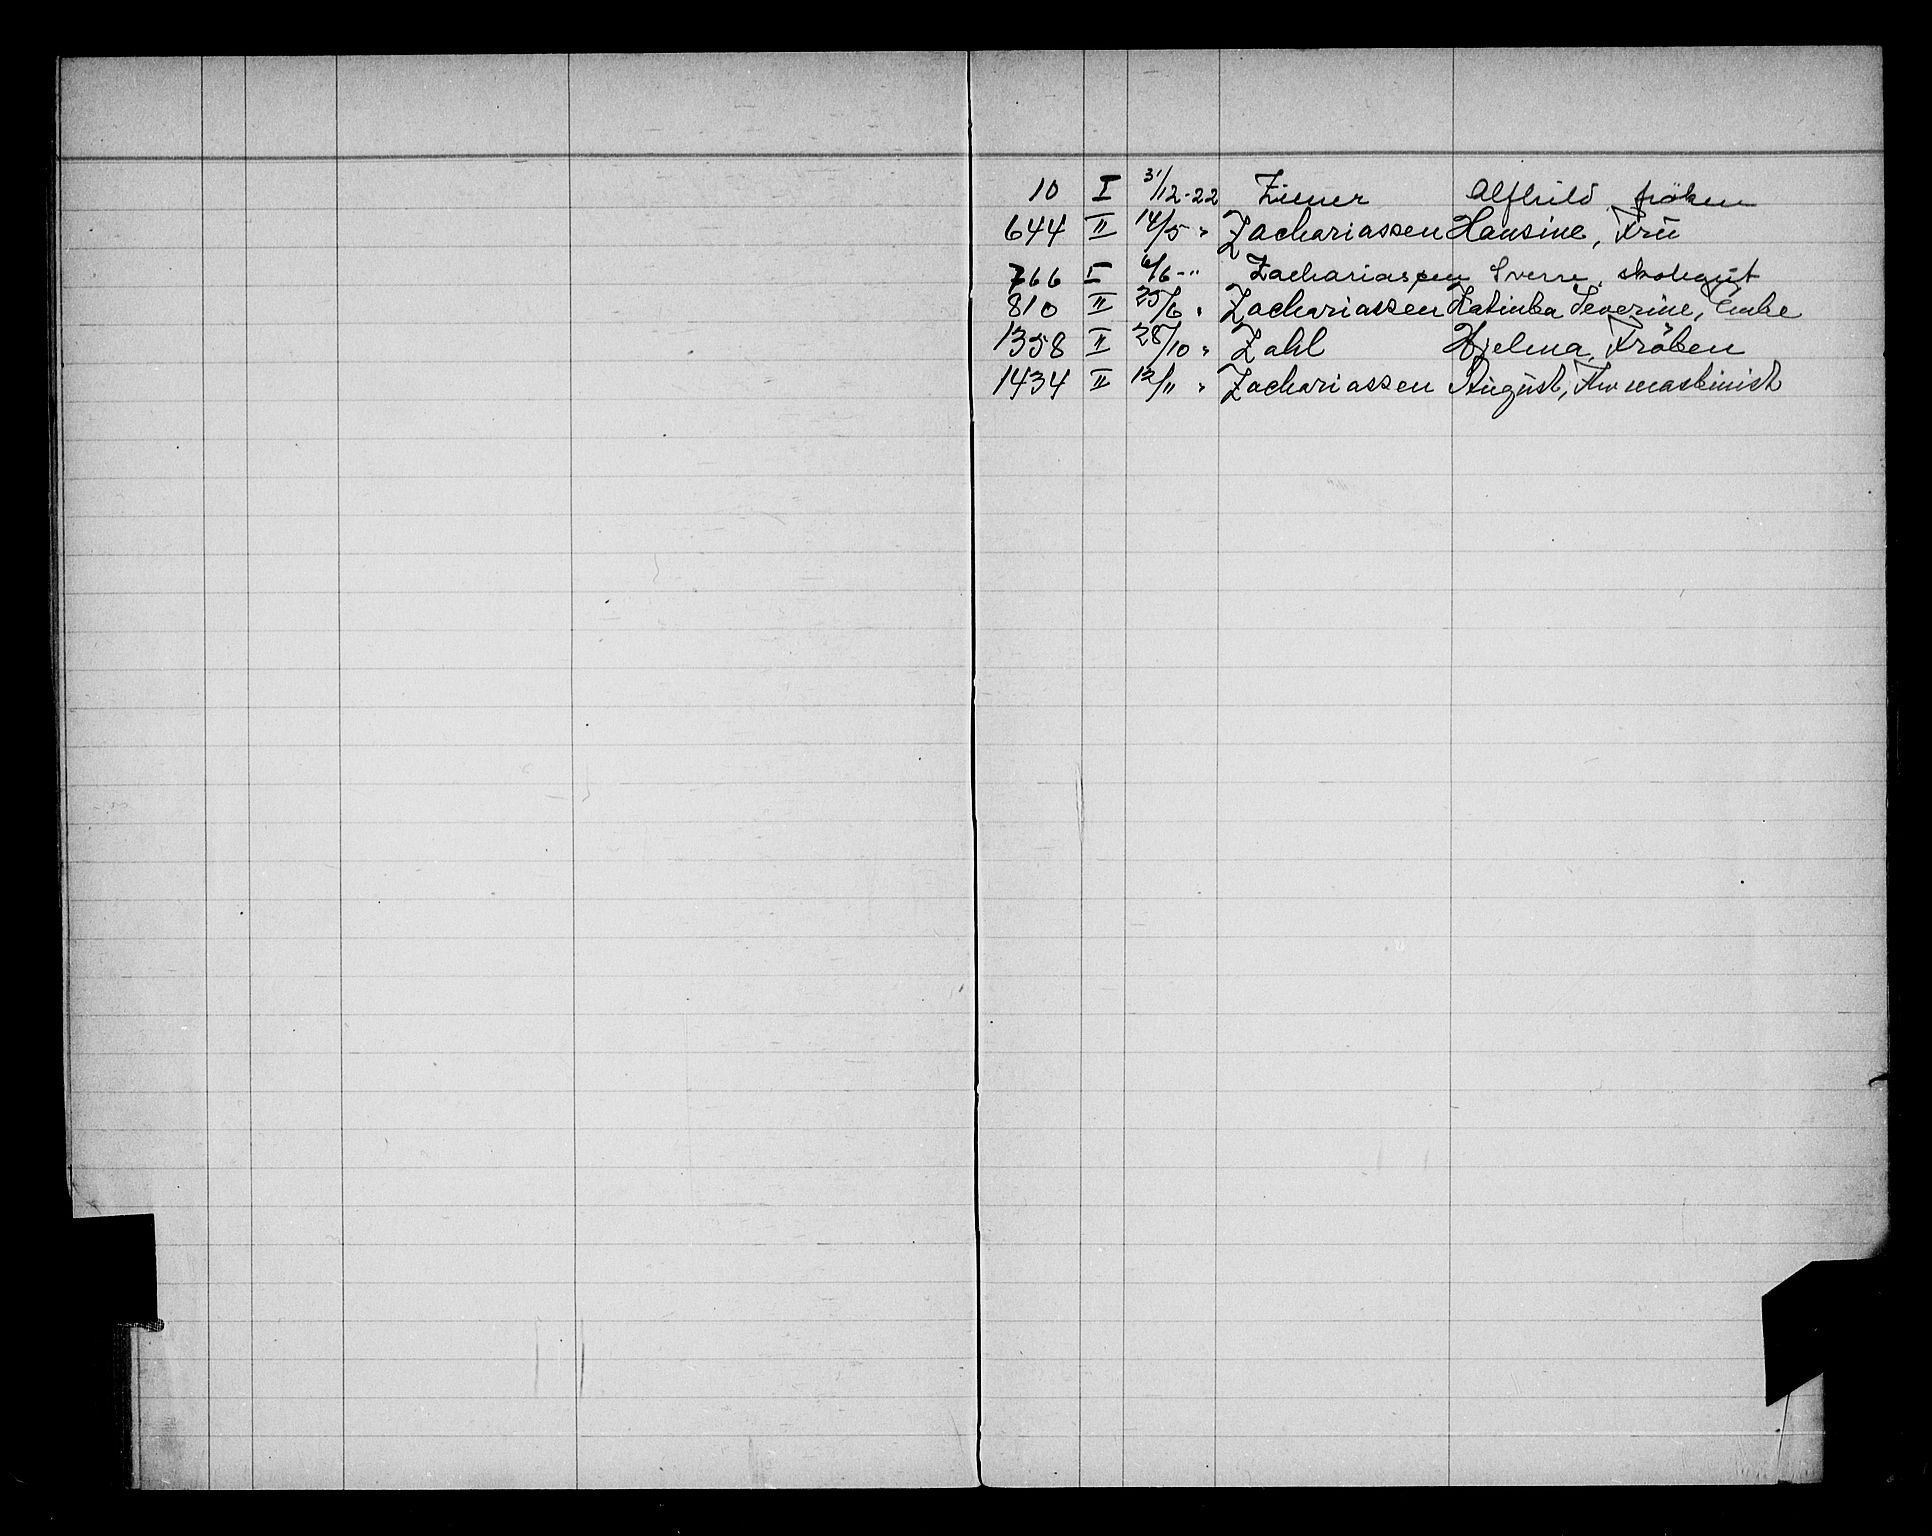 10 I 31/12-22 Ziener Alfhild frøken
644 II 14/5 " Zachariassen Hansine, Frü
766 I 6/6-" Zachariassen Sverre, skolegut
810 II 25/6 " Zachariassen Katinka Severine, Enke
1358 II 28/10 " Zahl Hjelma, Frøken
1434 II 12/11 " Zachariassen August, Fhv maskinist